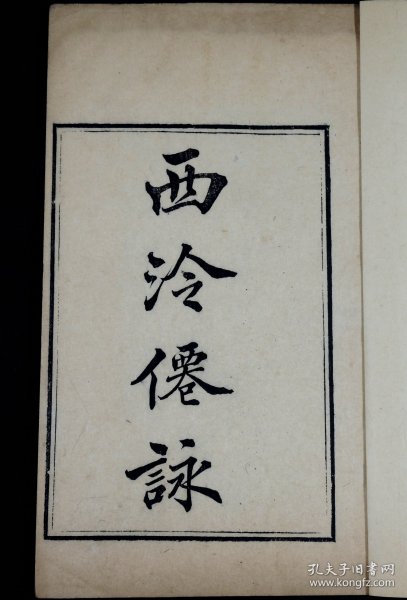 西泠僊詠
孔夫子旧书网
www.kongfz.com